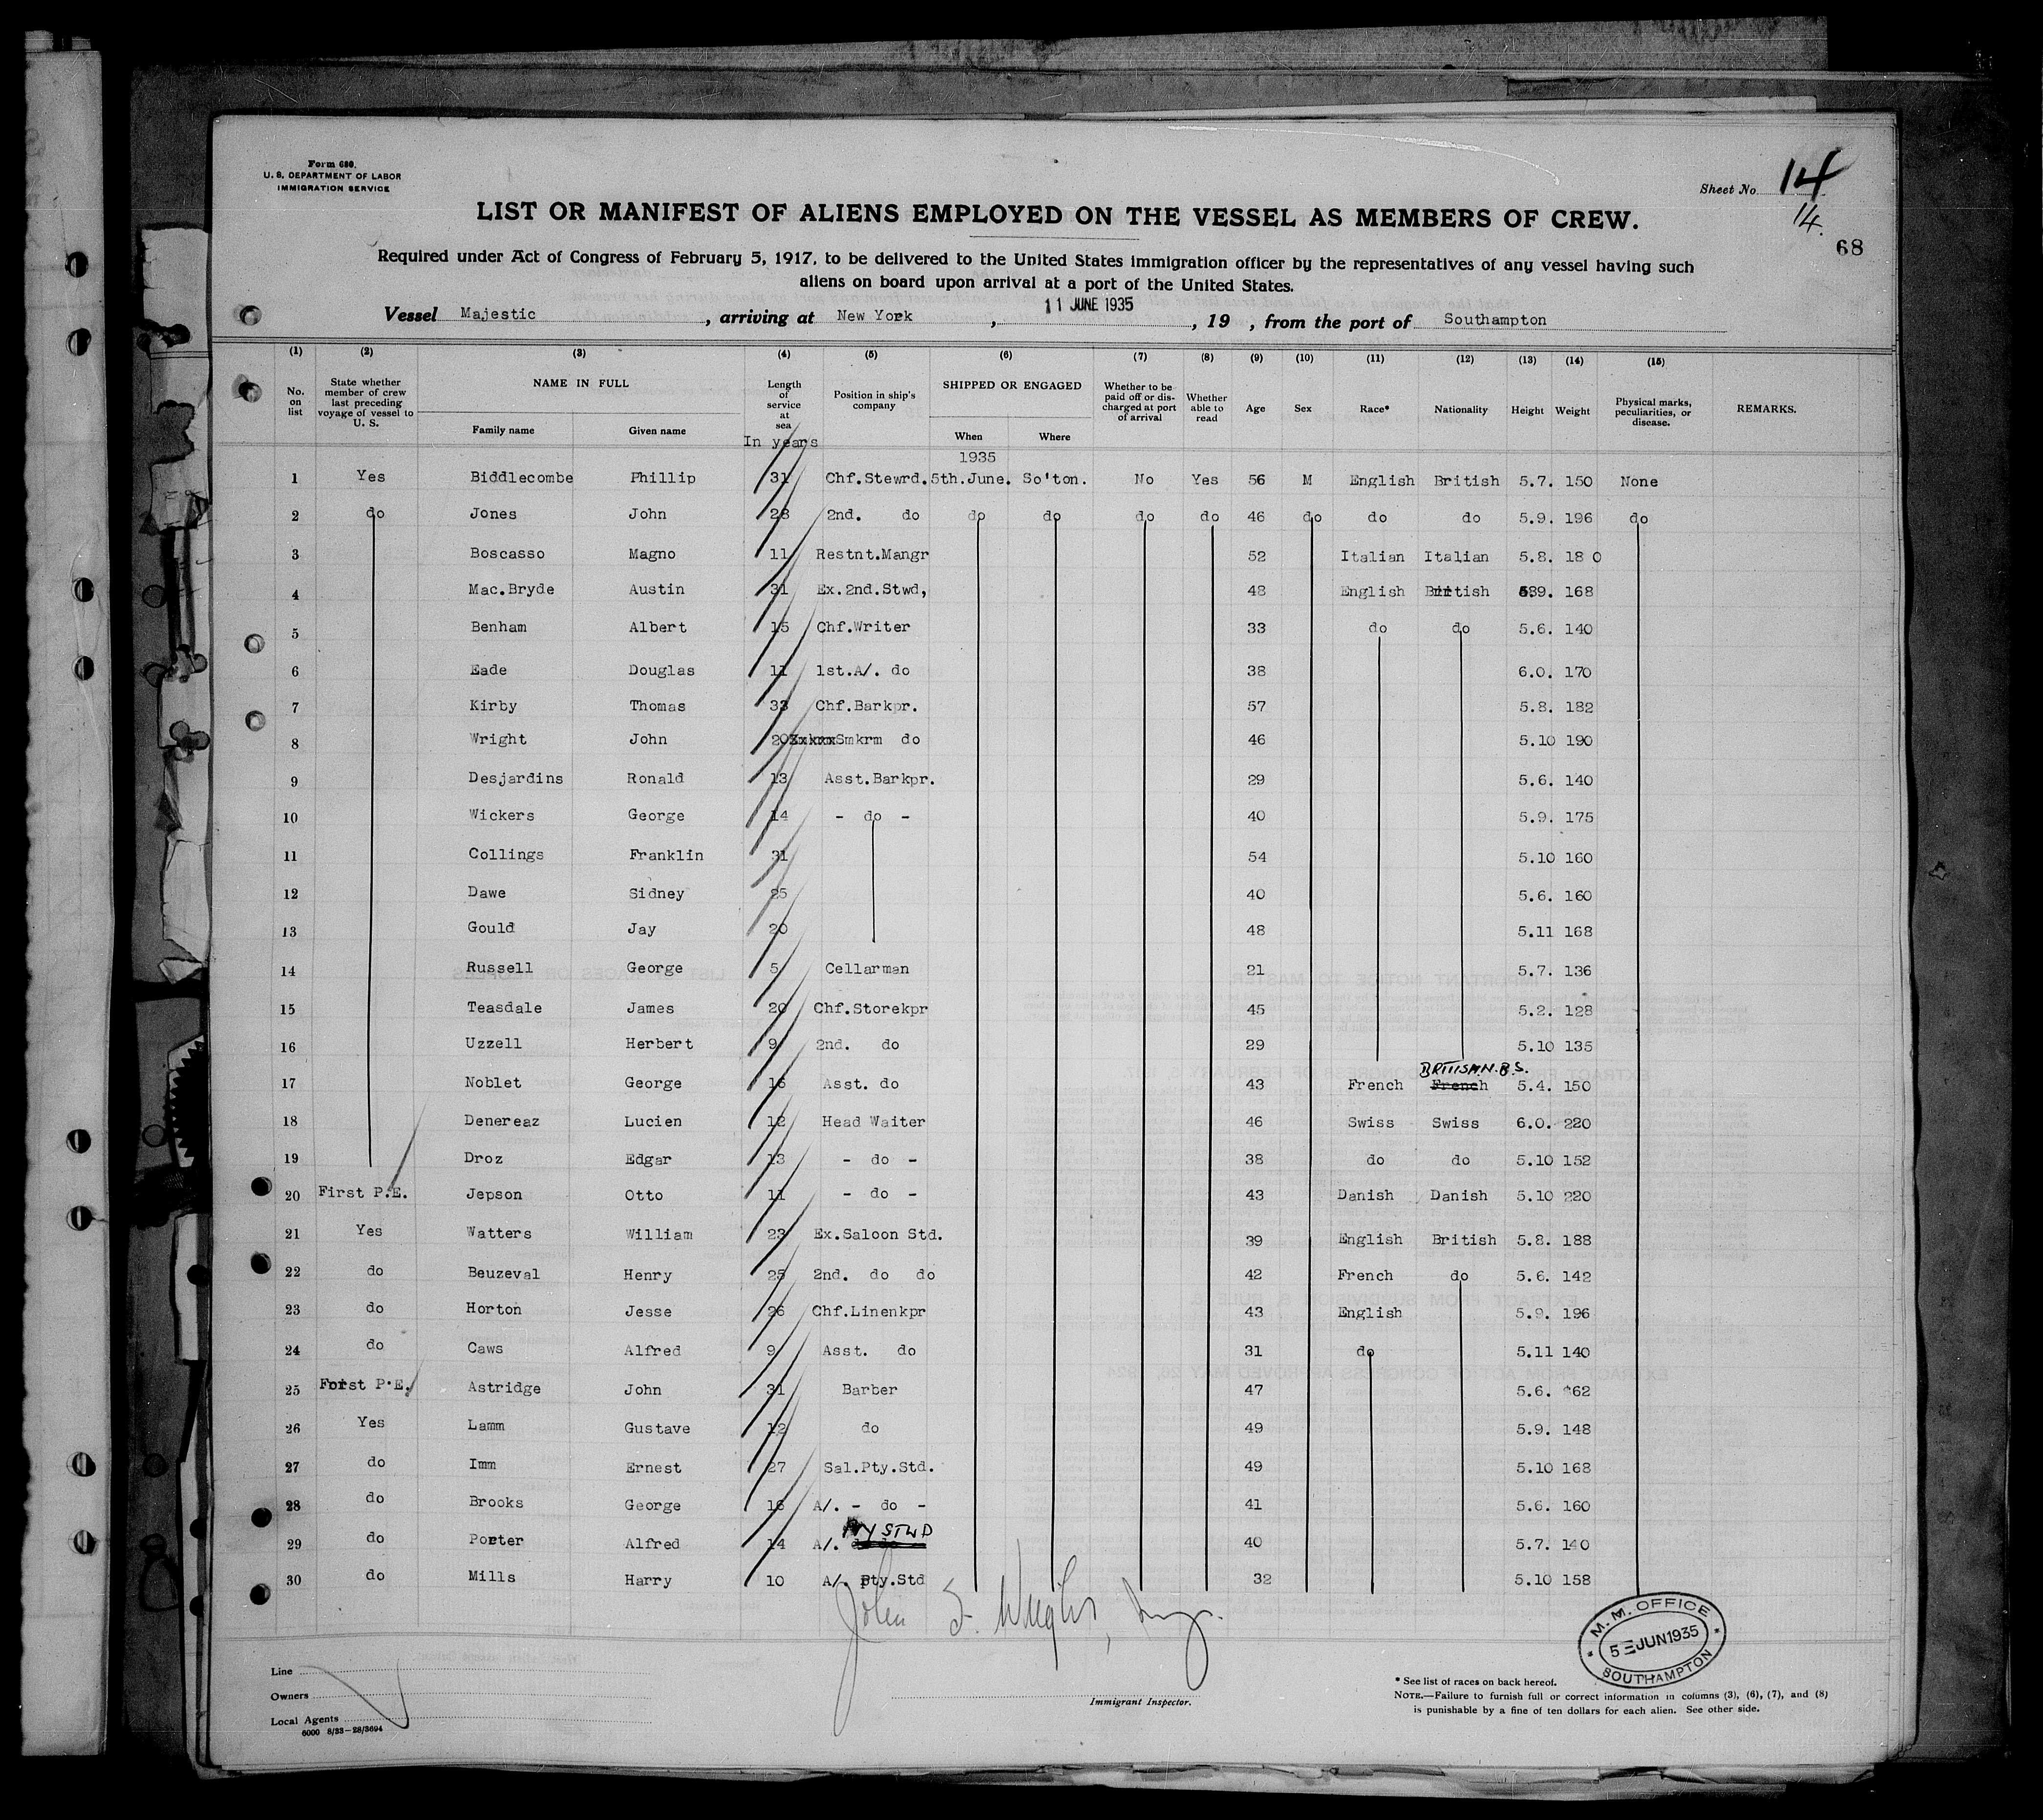 Form 680.
U. S. DEPARTMENT OF LABOR
IMMIGRATION SERVICE
Sheet No. 14
14.
68
LIST OR MANIFEST OF ALIENS EMPLOYED ON THE VESSEL AS MEMBERS OF CREW.
Required under Act of Congress of February 5, 1917, to be delivered to the United States immigration officer by the representatives of any vessel having such
aliens on board upon arrival at a port of the United States.
Vessel Majestic, arriving at New York, 11 JUNE 1935, 19 , from the port of Southampton
(1) (2) (3) (4) (5) (6) (7) (8) (9) (10) (11) (12) (13) (14) (15)
No. on list State whether member of crew last preceding voyage of vessel to U. S. NAME IN FULL Family name Given name Length of service at sea Position in ship's company SHIPPED OR ENGAGED When Where Whether to be paid off or discharged at port of arrival Whether able to read Age Sex Race* Nationality Height Weight Physical marks, peculiarities, or disease. REMARKS.
In years
1935
1 Yes Biddlecombe Phillip 31 Chf.Stewrd. 5th.June. So'ton. No Yes 56 M English British 5.7. 150 None
2 do Jones John 28 2nd. do do do do do 46 do do do 5.9. 196 do
3 Boscasso Magno 11 Restnt.Mangr 52 Italian Italian 5.8. 18 0
4 Mac.Bryde Austin 31 Ex.2nd.Stwd, 48 English British 589. 168
5 Benham Albert 15 Chf.Writer 33 do do 5.6. 140
6 Eade Douglas 11 1st.A/. do 38 6.0. 170
7 Kirby Thomas 33 Chf.Barkpr. 57 5.8. 182
8 Wright John 20 Smkrm do 46 5.10 190
9 Desjardins Ronald 13 Asst.Barkpr. 29 5.6. 140
10 Wickers George 14 - do - 40 5.9. 175
11 Collings Franklin 31 54 5.10 160
12 Dawe Sidney 25 40 5.6. 160
13 Gould Jay 20 48 5.11 168
14 Russell George 5 Cellarman 21 5.7. 136
15 Teasdale James 20 Chf.Storekpr 45 5.2. 128
16 Uzzell Herbert 9 2nd. do 29 5.10 135
BRITISH.N.B.S.
17 Noblet George 16 Asst. do 43 French French 5.4. 150
18 Denereaz Lucien 12 Head Waiter 46 Swiss Swiss 6.0. 220
19 Droz Edgar 13 - do - 38 do do 5.10 152
20 First P.E. Jepson Otto 11 - do - 43 Danish Danish 5.10 220
21 Yes Watters William 23 Ex.Saloon Std. 39 English British 5.8. 188
22 do Beuzeval Henry 25 2nd. do do 42 French do 5.6. 142
23 do Horton Jesse 26 Chf.Linenkpr 43 English 5.9. 196
24 do Caws Alfred 9 Asst. do 31 do 5.11 140
25 First P.E. Astridge John 31 Barber 47 5.6. 162
26 Yes Lamm Gustave 12 do 49 5.9. 148
27 do Imm Ernest 27 Sal.Pty.Std. 49 5.10 168
28 do Brooks George 16 A/. - do - 41 5.6. 160
29 do Porter Alfred 14 A/. PTY STWD 40 5.7. 140
30 do Mills Harry 10 A/. Pty.Std 32 5.10 158
John S. Wright,
M. M. OFFICE
5 JUN 1935
SOUTHAMPTON
Line
Owners
Local Agents
6000 8/33-28/3694
Immigrant Inspector.
* See list of races on back hereof.
NOTE.—Failure to furnish full or correct information in columns (3), (6), (7), and (8)
is punishable by a fine of ten dollars for each alien. See other side.